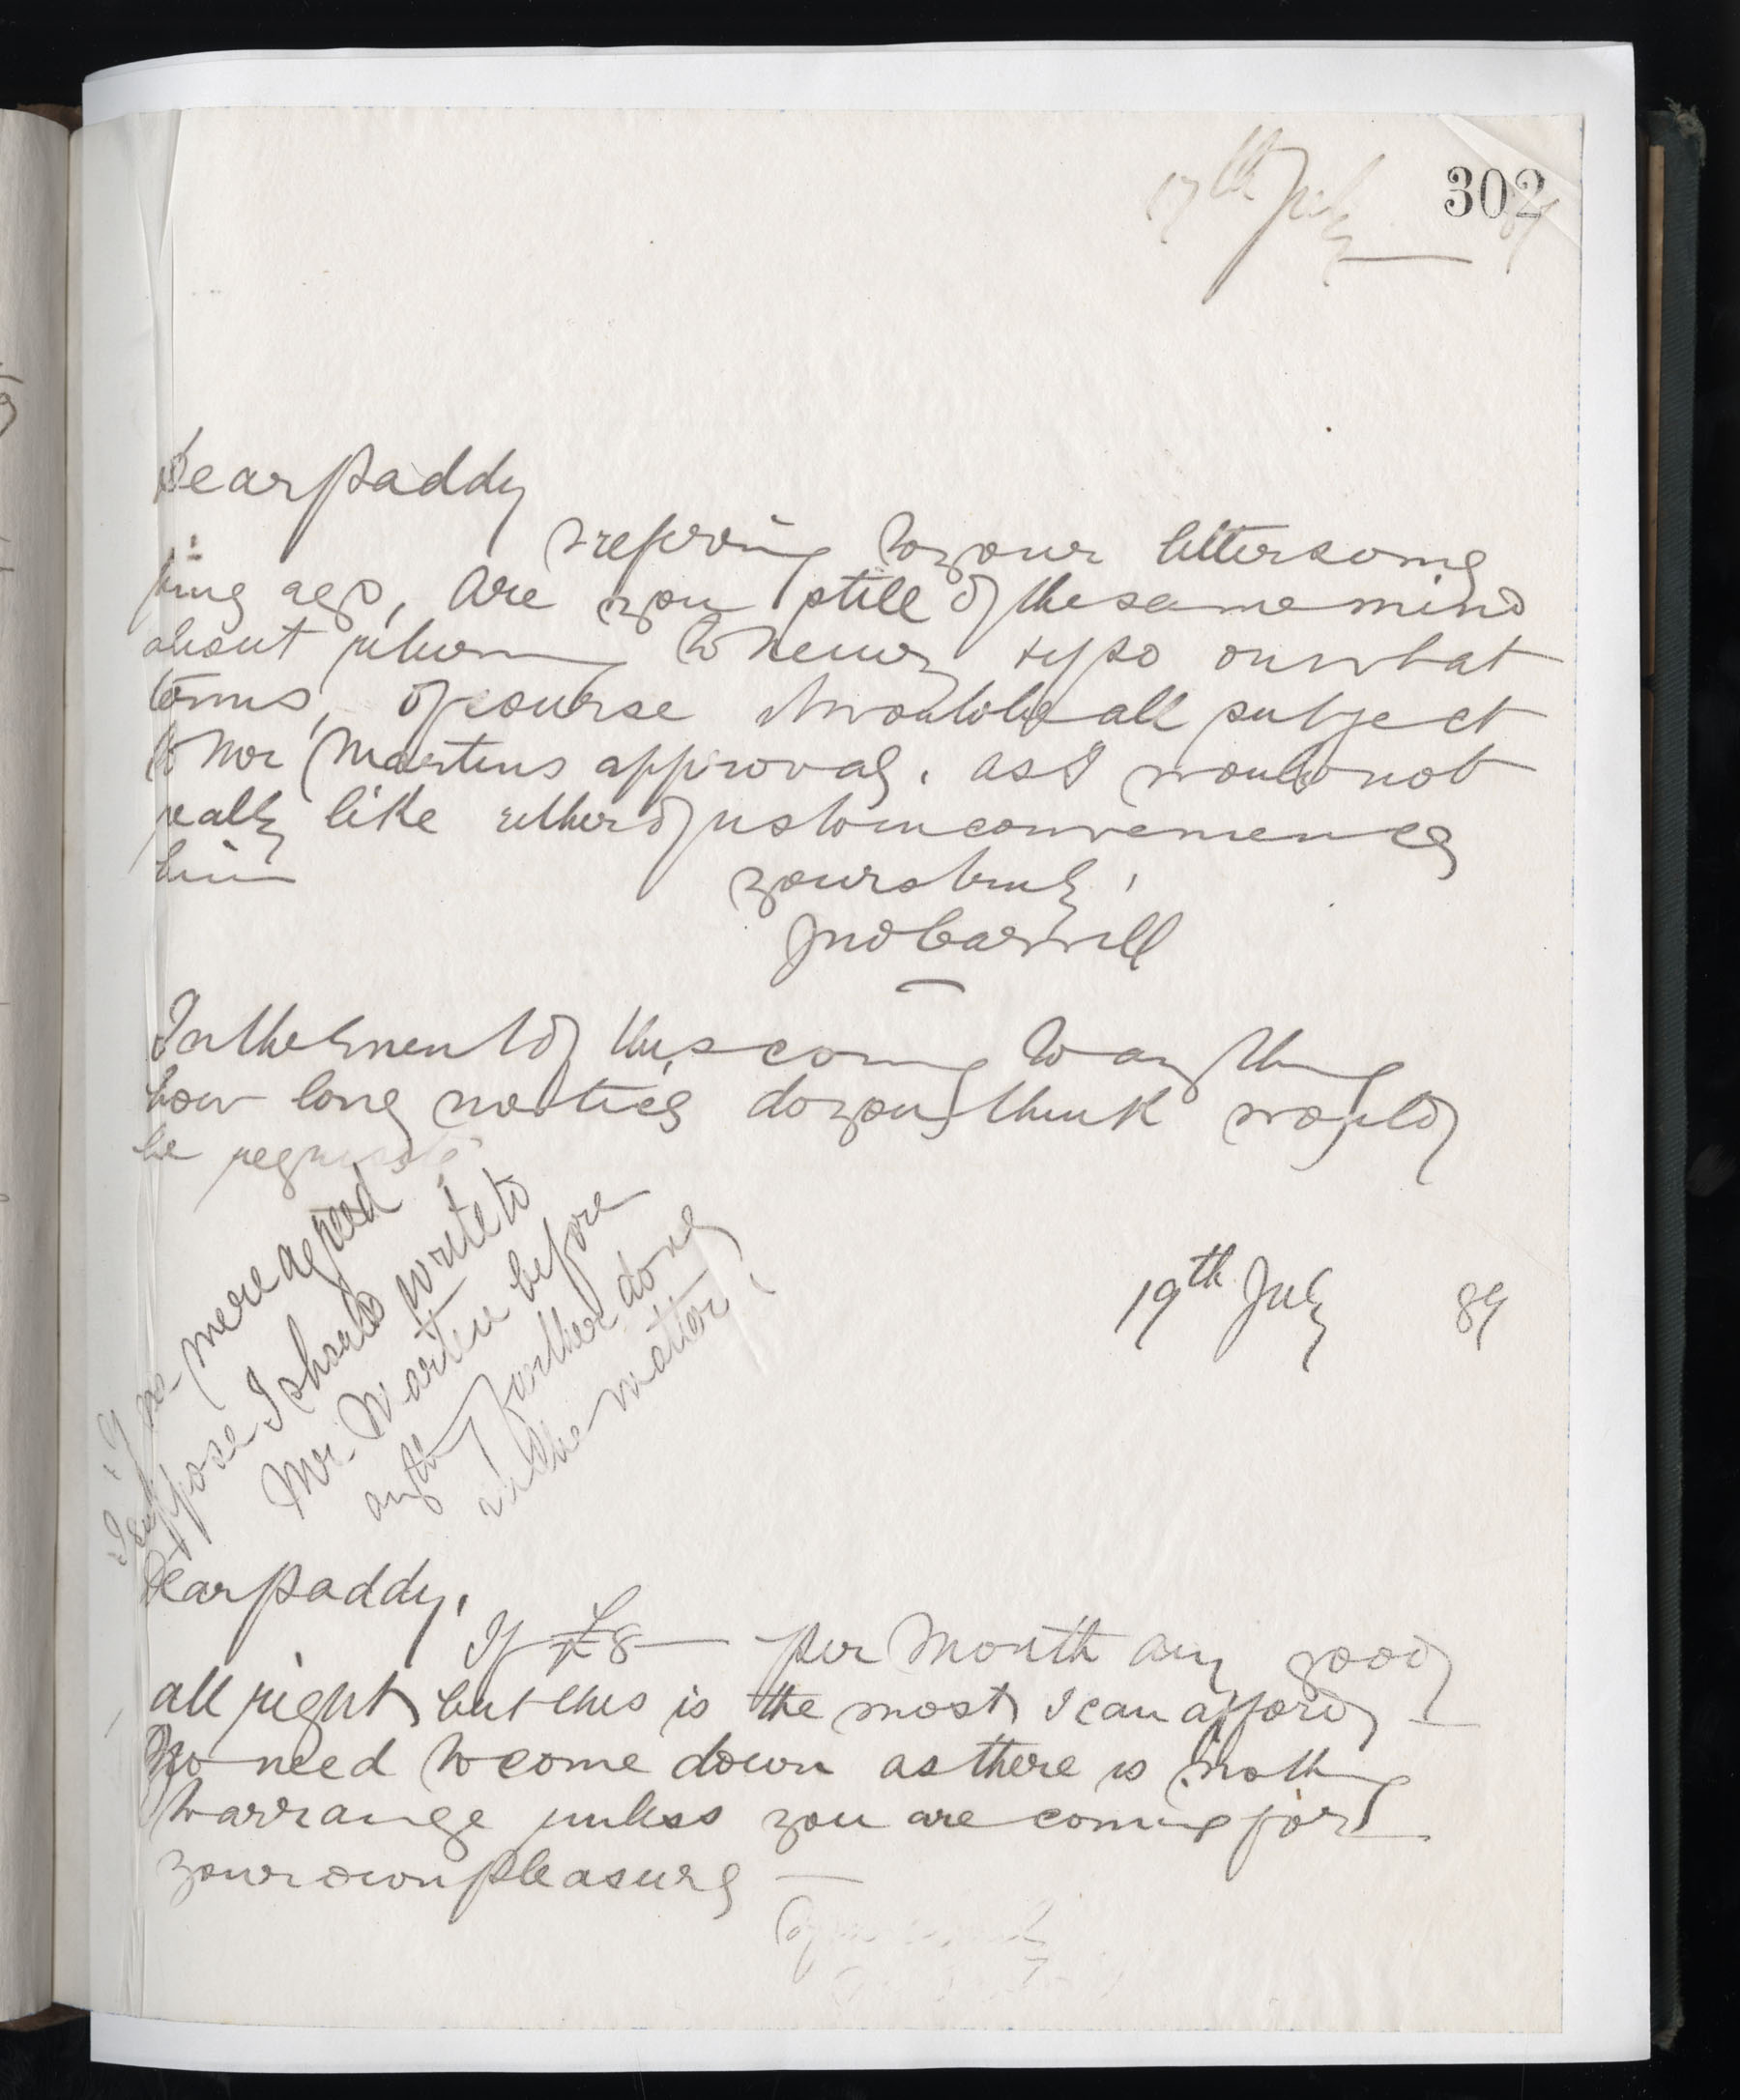 17th July 89
302
Dear Paddy
Refering to your letter some
time ago, Are you still of the same mind
about returning to Newry & if so on what
terms, of course it would be all subject
to Mr Martins approval. as I would not
really like either of us to inconvenience
him
yours truly,
Jno Carvill
In the event of this coming to anything
how long notice do you think would
be required
If we were agreed
I suppose I should write to
Mr. Martin before
anything further done
in the matter
19th July 89
Dear Paddy,
If £8 per Month any good
all right but this is the most I can afford
No need to come down as there is nothing
to arrange unless you are coming for
your own pleasure